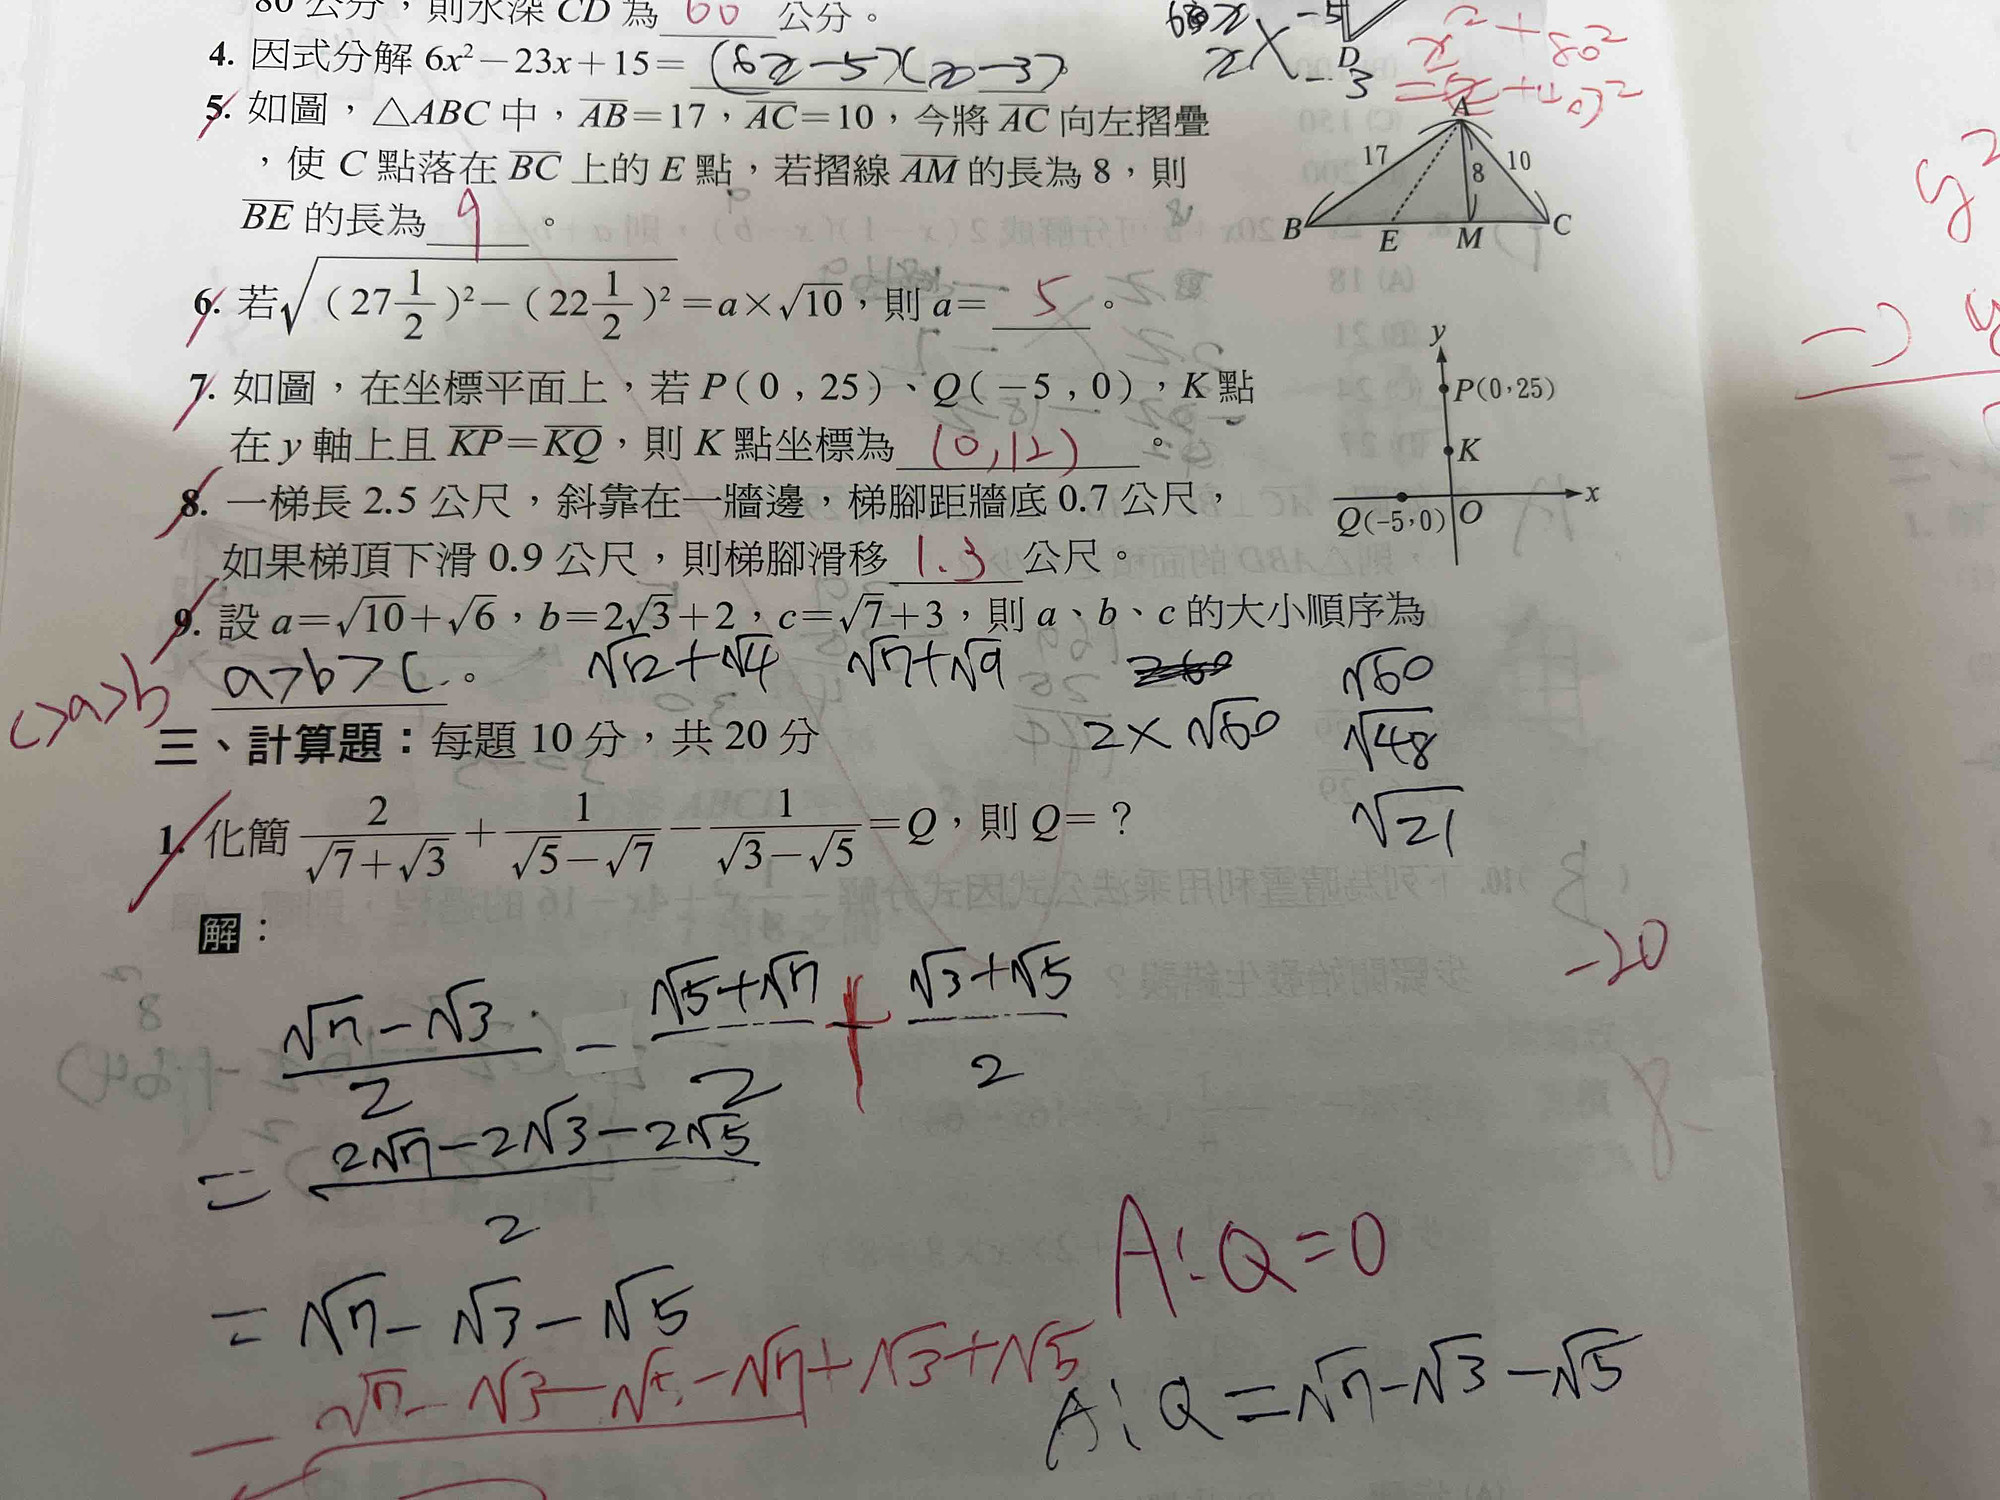 80 公分，則水深 CD 為 60 公分。
4. 因式分解 6x²－23x＋15＝ (6x－5)(x－3)。
x －3
x²＋80²
5. 如圖，△ABC 中，AB＝17，AC＝10，今將 AC 向左摺疊
，使 C 點落在 BC 上的 E 點，若摺線 AM 的長為 8，則
BE 的長為 9 。
D
A
17 8 10
B E M C
6. 若√((27 1/2)²－(22 1/2)²)＝a×√10，則 a＝ 5 。
7. 如圖，在坐標平面上，若 P(0 , 25)、Q(－5 , 0)，K 點
在 y 軸上且 KP＝KQ，則 K 點坐標為 (0,12) 。
y
P(0,25)
K
x
Q(－5,0) O
8. 一梯長 2.5 公尺，斜靠在一牆邊，梯腳距牆底 0.7 公尺，
如果梯頂下滑 0.9 公尺，則梯腳滑移 1.3 公尺。
9. 設 a＝√10＋√6，b＝2√3＋2，c＝√7＋3，則 a、b、c 的大小順序為
a>b>c 。 √12＋√4 √7＋√9
c>a>b
2×√60
√60
√48
√21
三、計算題：每題 10 分，共 20 分
1. 化簡 2/(√7＋√3)＋1/(√5－√7)－1/(√3－√5)＝Q，則 Q＝？
解：
－20
(√7－√3)/2－(√5＋√7)/2＋(√3＋√5)/2
＝(2√7－2√3－2√5)/2
＝√7－√3－√5
A:Q＝0
√7－√3－√5－√7＋√3＋√5
A:Q＝√7－√3－√5